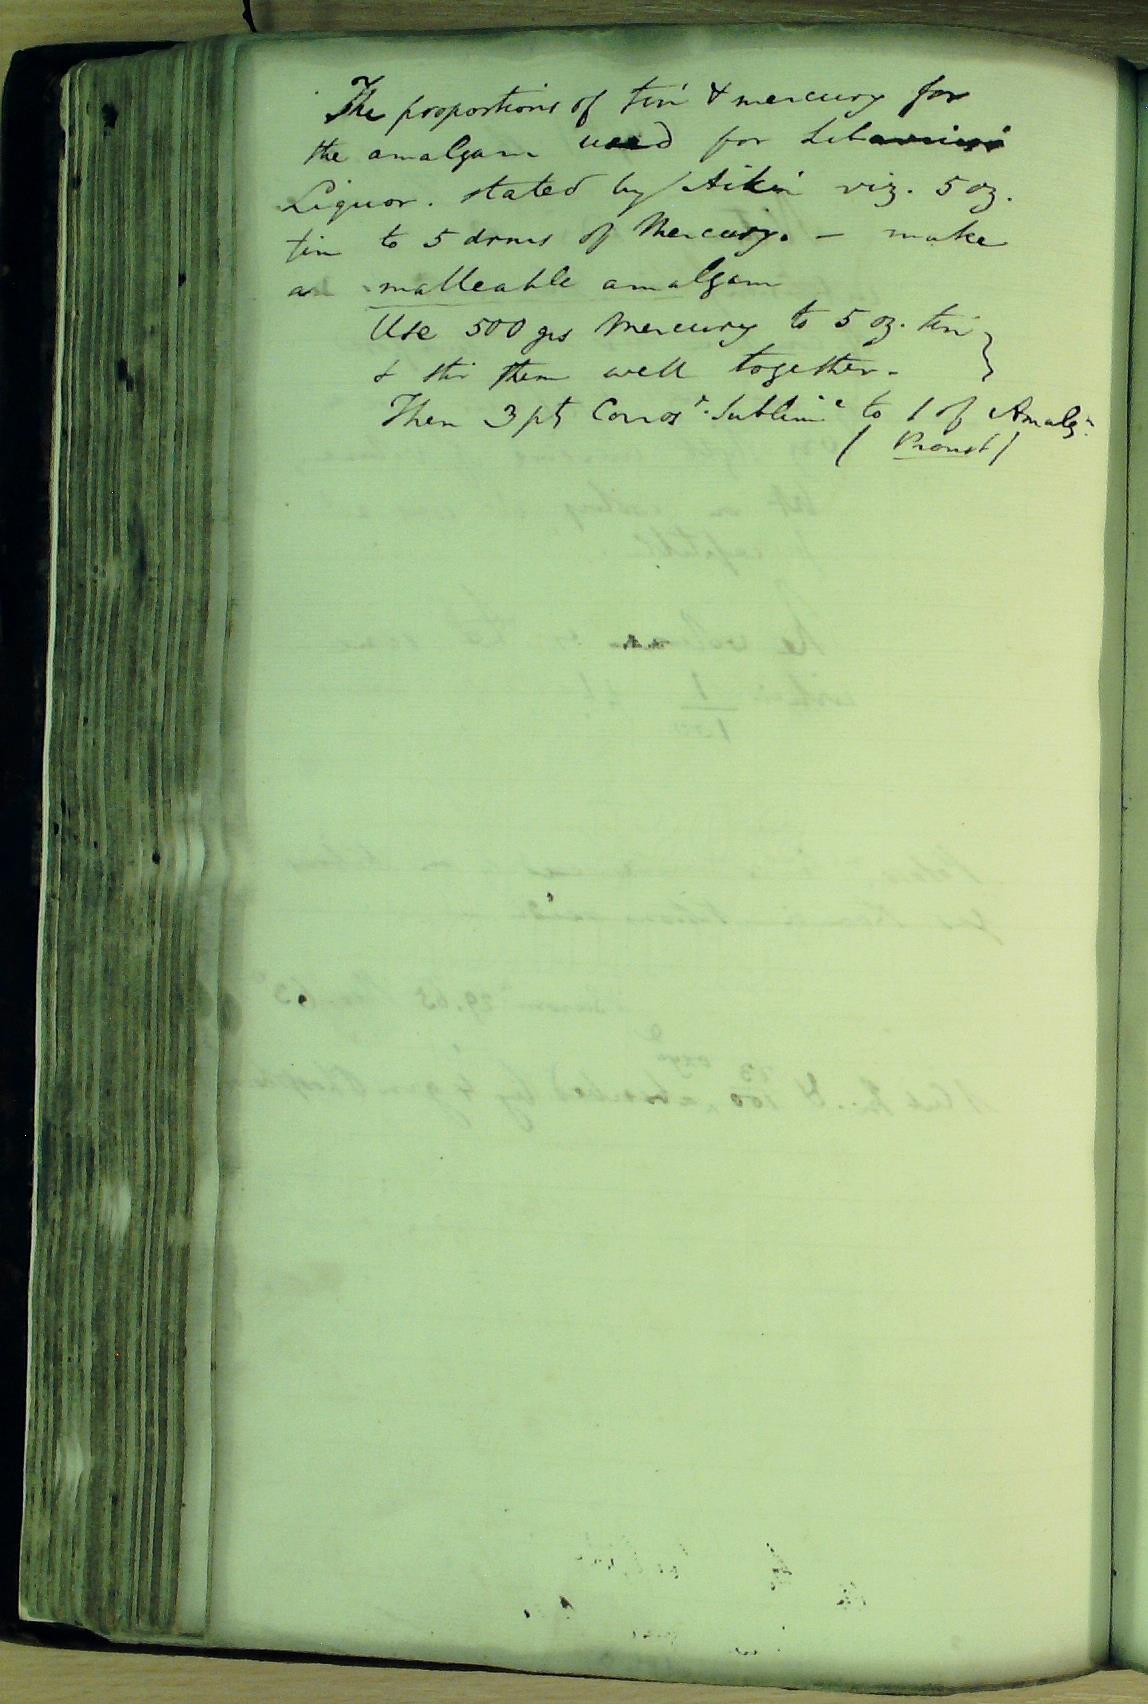 The proportions of tin & mercury for
the amalgam used for Libavius's
Liquor. stated by Aikin viz. 5 oz.
tin to 5 drms of Mercury. – make
a malleable amalgam
Use 500 grs Mercury to 5 oz. tin }
& stir them well together.
Then 3 pts Corros.e Sublim.e to 1 of Amalg.m
(Proust)